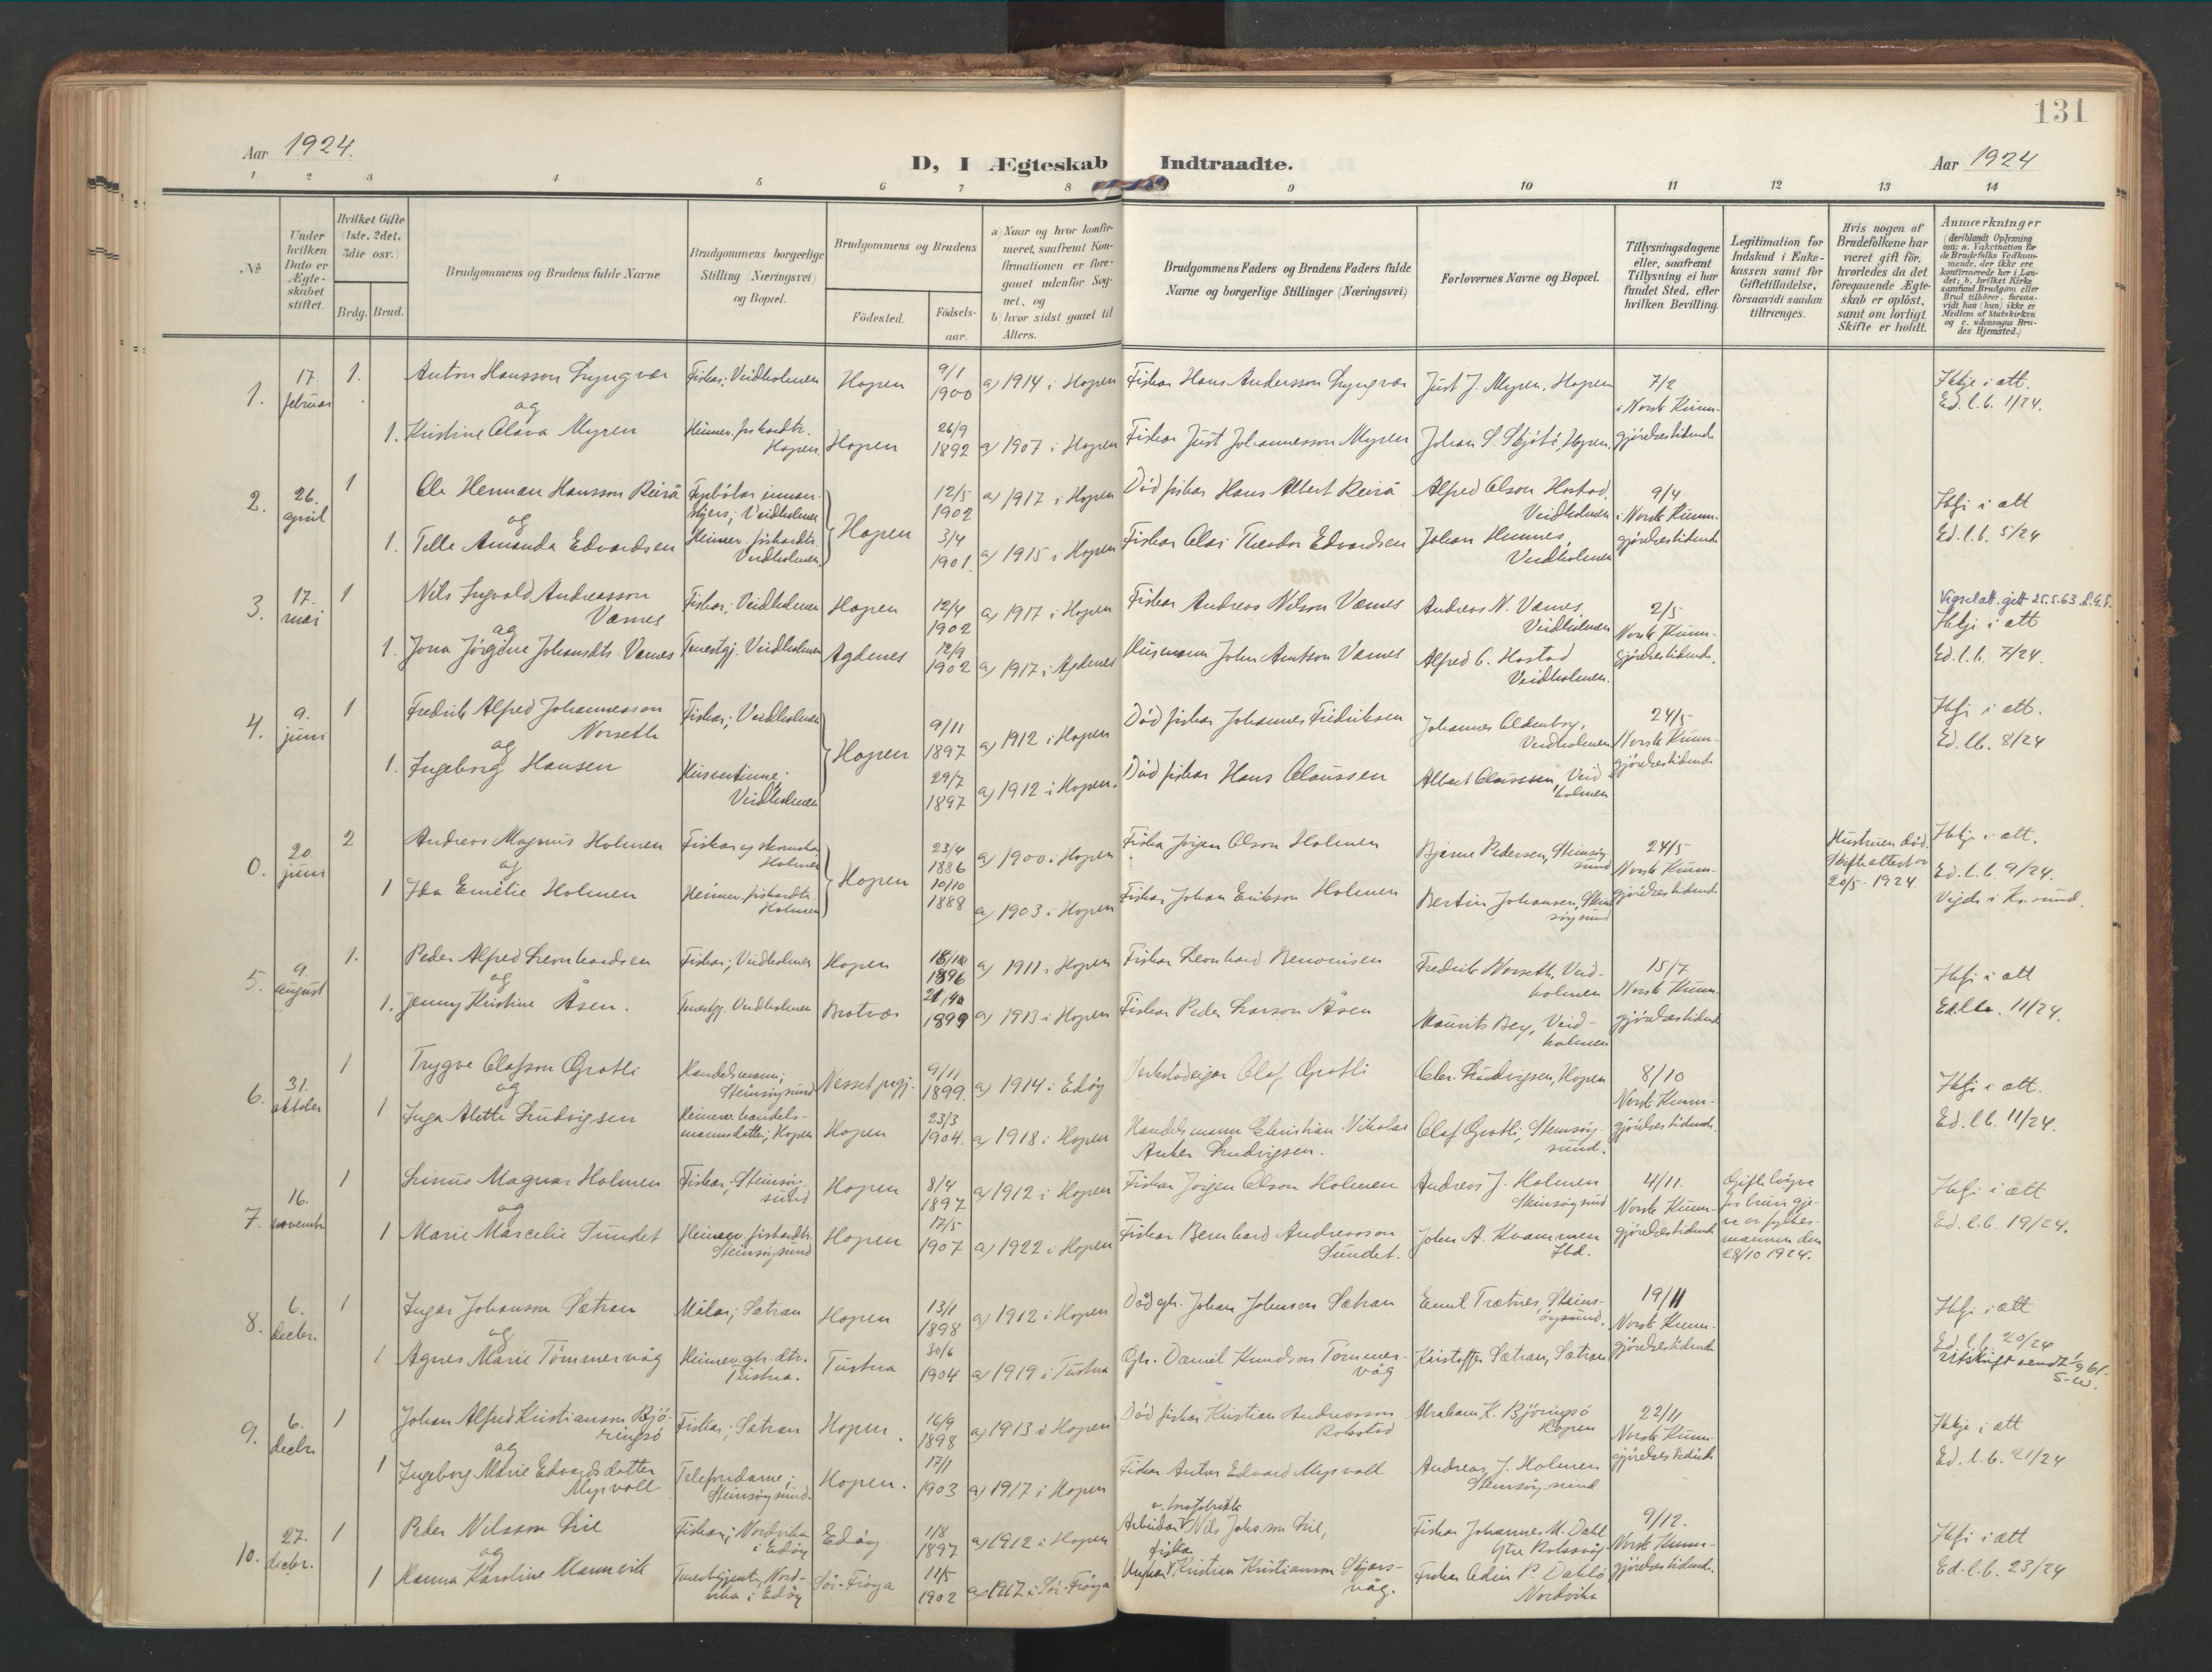 131
Aar 1924.
D, I Ægteskab Indtraadte.
Aar 1924
1 2 3 4 5 6 7 8 9 10 11 12 13 14
№
Under hvilken Dato er Ægteskabet stiftet.
Hvilket Gifte (1ste, 2det, 3die osv.)
Brdg. Brud.
Brudgommens og Brudens fulde Navne
Brudgommens borgerlige Stilling (Næringsvei) og Bopæl.
Brudgommens og Brudens
Födested.
Födsels-aar.
a) Naar og hvor konfirmeret, saafremt Konfirmationen er foregaaet udenfor Sognet, og
b) hvor sidst gaaet til Alters.
Brudgommens Faders og Brudens Faders fulde Navne og borgerlige Stillinger (Næringsvei)
Forlovernes Navne og Bopæl.
Tillysningsdagene eller, saafremt Tillysning ei har fundet Sted, efter hvilken Bevilling.
Legitimation for Indskud i Enkekassen samt for Giftetilladelse, forsaavidt saadan tiltrænges.
Hvis nogen af Brudefolkene har været gift för, hvorledes da det foregaaende Ægteskab er oplöst, samt om lovligt Skifte er holdt.
Anmærkninger
(deriblandt Oplysning om: a. Vakcination for de Brudefolks Vedkommende, der ikke ere konfirmerede her i Landet; b. hvilket Kirkesamfund Brudgom eller Brud tilhörer, forsaavidt han (hun) ikke er Medlem af Statskirken og c. udensogns Brudes Hjemsted.)
1. 17. februar 1. Anton Hansson Lyngvær Fiskar; Veidholmen Hopen 9/1 1900 a) 1914 i Hopen Fiskar Hans Andersson Lyngvær Just J. Myren, Hopen 7/2 i Norsk Kunngjörelsestidende Ed. l. b. 1/24.
og
1. Kristine Olava Myren Heimev. fiskardtr. Hopen Hopen 26/9 1892 a) 1907 i Hopen Fiskar Just Johannesson Myren Johan S. Hopen.
2. 26. april 1 Ole Herman Hansson Reirå Veidholmen Hopen 12/5 1902 a) 1917 i Hopen Död fiskar Hans Albert Reirå Alfred Olson Hostad, Veidholmen 9/4 i Norsk Kunngjörelsestidende i att Ed. l. b. 5/24
og
1. Telle Amanda Edvardsen Heimev. fiskardtr. Veidholmen 3/4 1901. a) 1915 i Hopen Fiskar Olai Theodor Edvardsen Johan Hennes, Veidholmen
3. 17. mai 1 Nils Ingvald Andreasson Værnes Fiskar; Veidholmen Hopen 12/4 1902 a) 1917 i Hopen Fiskar Andreas Nilson Værnes Andreas N. Værnes, Veidholmen 2/5 Norsk Kunngjörelsestidende. Vigselatt. gitt 25.5.63. i att Ed. l. b. 7/24.
og
1. Jona Jörgine Johansdtr. Værnes Tenestgj. Veidholmen Agdenes 12/9 1902 a) 1917 i Agdenes Husmann John Arntsson Værnes Alfred O. Hostad Veidholmen.
4. 9. juni 1 Fredrik Alfred Johannesson Norseth Fiskar; Veidholmen Hopen 9/11 1897 a) 1912 i Hopen Död fiskar Johannes Fredriksen Johannes Oldenborg, Veidholmen 24/5 Norsk Kunngjörelsestidende i att. Ed. l b. 8/24
og
1. Ingeborg Hansen Veidholmen 29/7 1897 a) 1912 i Hopen. Död fiskar Hans Claussen Albert Claussen, Veidholmen
0. 20. juni 2 Andreas Magnus Holmen Fiskar og Holmen Hopen 23/4 1886 a) 1900 i Hopen Fiskar Jörgen Olson Holmen Bjarne Pedersen, Steinsöysund 24/5 Norsk Kunngjörelsestidende Hustruen död. Skifteattest av 20/5-1924. i att. Ed. l. b. 9/24. Vigde i Kr.sund.
og
1 Ida Emelie Holmen Heimev. fiskardtr. Holmen 10/10 1888 a) 1903 i Hopen Fiskar Johan Erikson Holmen Bertin Johansen, Steinsöysund
5. 9. august 1. Peder Alfred Leonhardsen Fiskar; Veidholmen Hopen 1896 a) 1911 i Hopen Fiskar Leonhard Benonisen Fredrik Norseth, Veidholmen 15/7 Norsk Kunngjörelsestidende i att Ed. l. b. 11/24.
og
1. Jenny Kristine Åsen. Tenestgj. Veidholmen Brotvær 1899 a) 1913 i Hopen Fiskar Peder Larson Åsen Maurits Bey, Veidholmen
6. 31. oktober 1 Trygve Olafson Grotli Handelsmann; Steinsöysund Nesset prgj. 9/11 1899. a) 1914 i Edöy Verkstadeigar Olaf Grotli Chr. Ludvigsen, Hopen 8/10 Norsk Kunngjörelsestidende. i att. Ed. l b. 11/24.
og
1 Inga Alette Ludvigsen Heimev. handelsmannsdotter; Hopen Hopen 23/3 1904. a) 1918 i Hopen Handelsmann Christian Nikolai Anker Ludvigsen. Olaf Grotli, Steinsöysund.
7. 16. november 1 Linus Magnar Holmen Fiskar; Steinsöysund Hopen 8/4 1897 a) 1912 i Hopen Fiskar Jörgen Olson Holmen Andreas J. Holmen Steinsöysund 4/11. Norsk Kunngjörelsestidende Gifteløyve for brui gjeve av fylkesmannen den 28/10 1924. i att Ed. l. b. 19/24.
og
1 Marie Marcelie Sundet Heimev. fiskardtr. Steinsöysund Hopen 12/5 1907 a) 1922 i Hopen Fiskar Bernhard Andreasson Sundet. John A. Kvammen Ibd.
8. 6. decbr. 1 Ingar Johanson Sætran Målar; Sætran Hopen 13/1 1898 a) 1912 i Hopen Död gbr. Johan Johnson Sætran Emil Trætnes, Steinsöysund. 19/11 Norsk Kunngjörelsestidende i att Ed. l. b. 20/24 Utskrift sendt
og
1 Agnes Marie Tömmervåg Heimev. gbr. dtr. Tustna. Tustna 30/6 1904 a) 1919 i Tustna Gbr. Daniel Knudson Tömmervåg Kristoffer Sætran, Sætran
9. 6. decbr 1 Johan Alfred Kristianson Björingsö Fiskar; Sætran Hopen. 16/9 1898 a) 1913 i Hopen Död fiskar Kristian Andreasson Rokstad Abraham K. Björingsö Hopen 22/11 Norsk Kunngjörelsestidende i att Ed. l. b. 21/24
og
1 Ingeborg Marie Edvardsdotter Myrvoll Telefondame; Steinsöysund. Hopen. 17/1 1903 a) 1917 i Hopen Fiskar Anton Edvard Myrvoll Andreas J. Holmen Steinsöysund
10. 27. decbr. 1 Peder Nilsson Lie Fiskar; Nordvika i Edöy Edöy 1/8 1897 a) 1912 i Hopen Arbeidar Nils Johs.son Lie, Fiskar Johannes M. Dahl Ytre 9/12. Norsk Kunngjörelsestidende. i att Ed. l. b. 23/24
og
1 Hanna Karoline Mannvik Tenestgjente, Nordvika i Edöy Sör-Fröya 11/5 1902 a) 1917 i Sör-Fröya fiskar Kristian Kristianson Skjærsvåg. Fiskar Odin P. Dahlö Nordvika